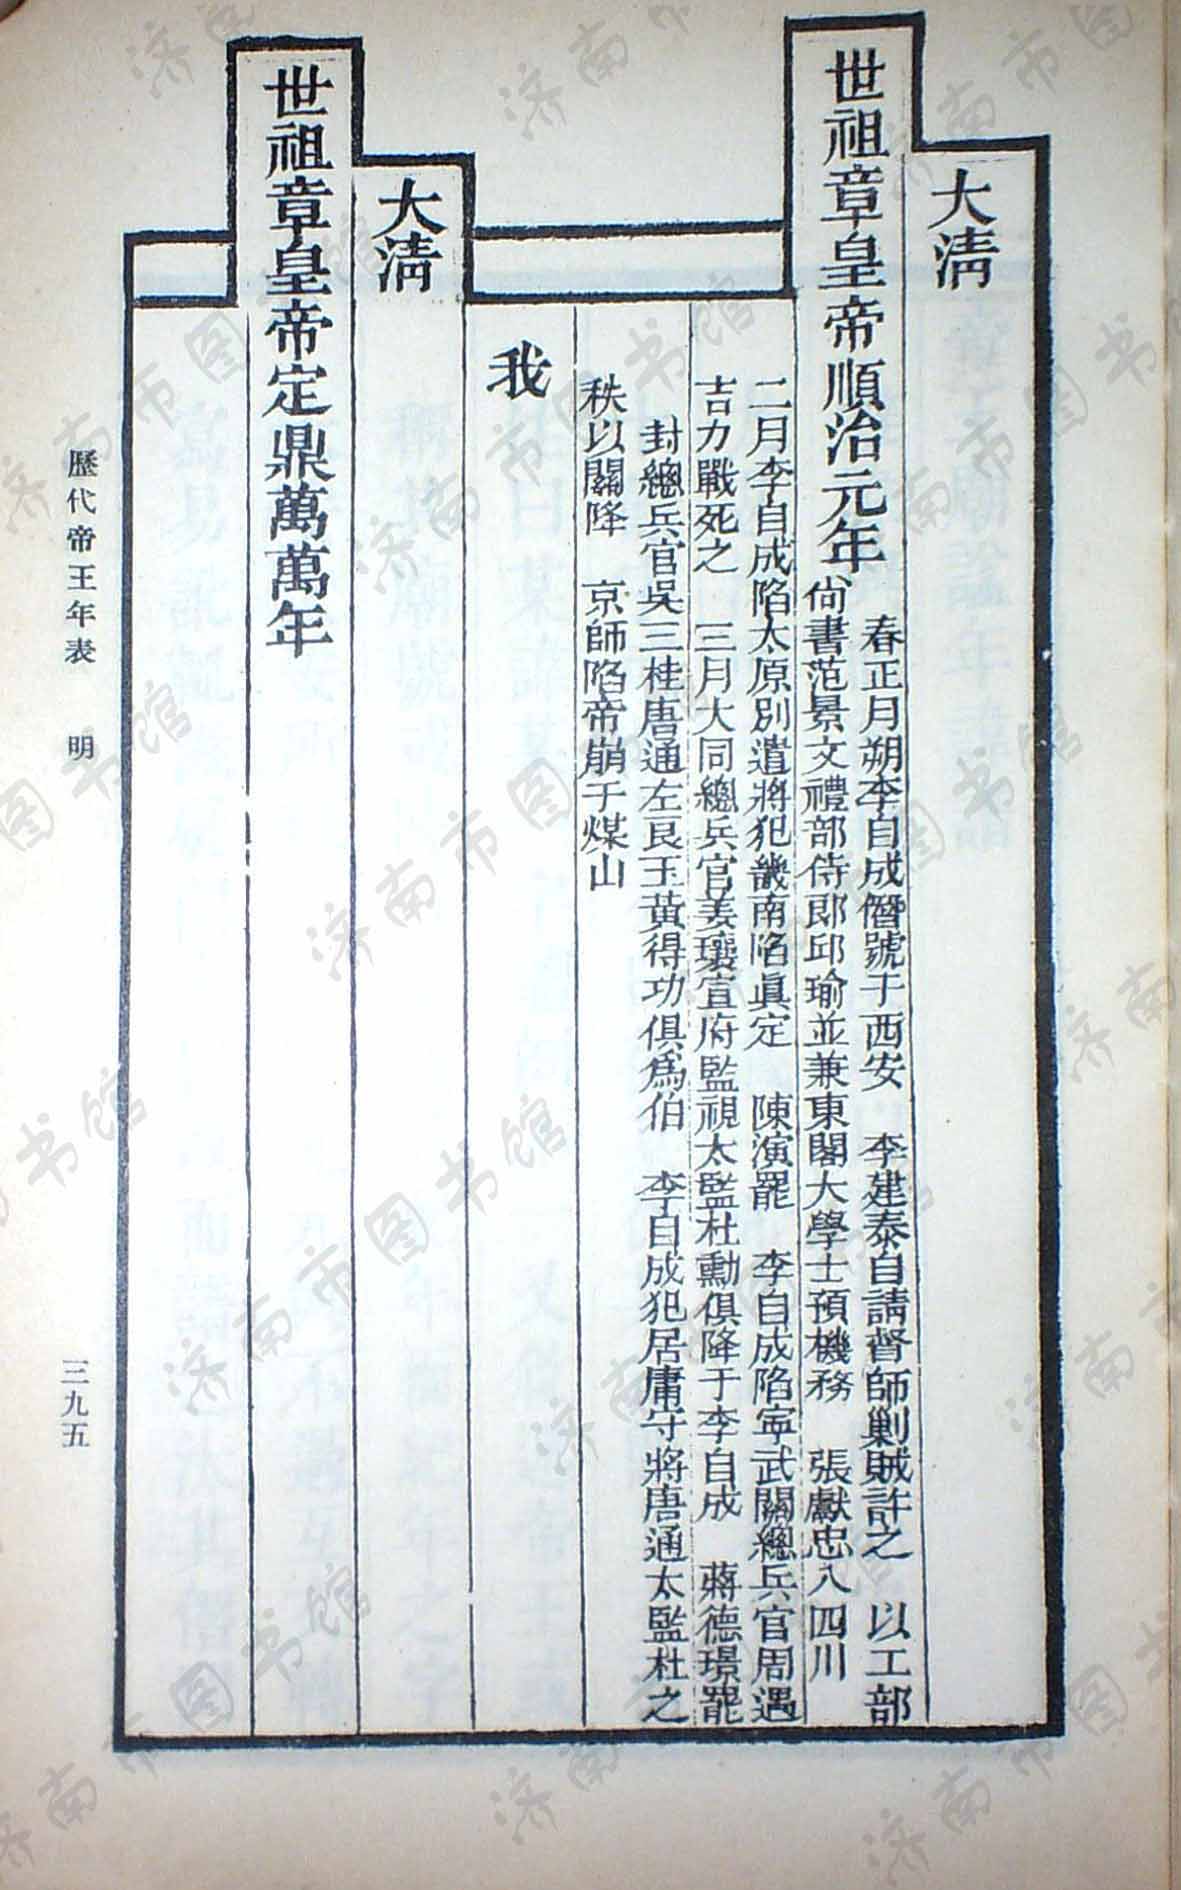 大淸
世祖章皇帝順治元年
春正月朔李自成僭號于西安　李建泰自請督師剿賊許之　以工部
尙書范景文禮部侍郎邱瑜並兼東閣大學士預機務　張獻忠入四川
二月李自成陷太原別遣將犯畿南陷眞定　陳演罷　李自成陷寧武關總兵官周遇
吉力戰死之　三月大同總兵官姜瓖宣府監視太監杜勳俱降于李自成　蔣德璟罷
封總兵官吳三桂唐通左良玉黃得功俱爲伯　李自成犯居庸守將唐通太監杜之
秩以關降　京師陷帝崩于煤山
我
大淸
世祖章皇帝定鼎萬萬年
歷代帝王年表　明
三九五
济南市图书馆